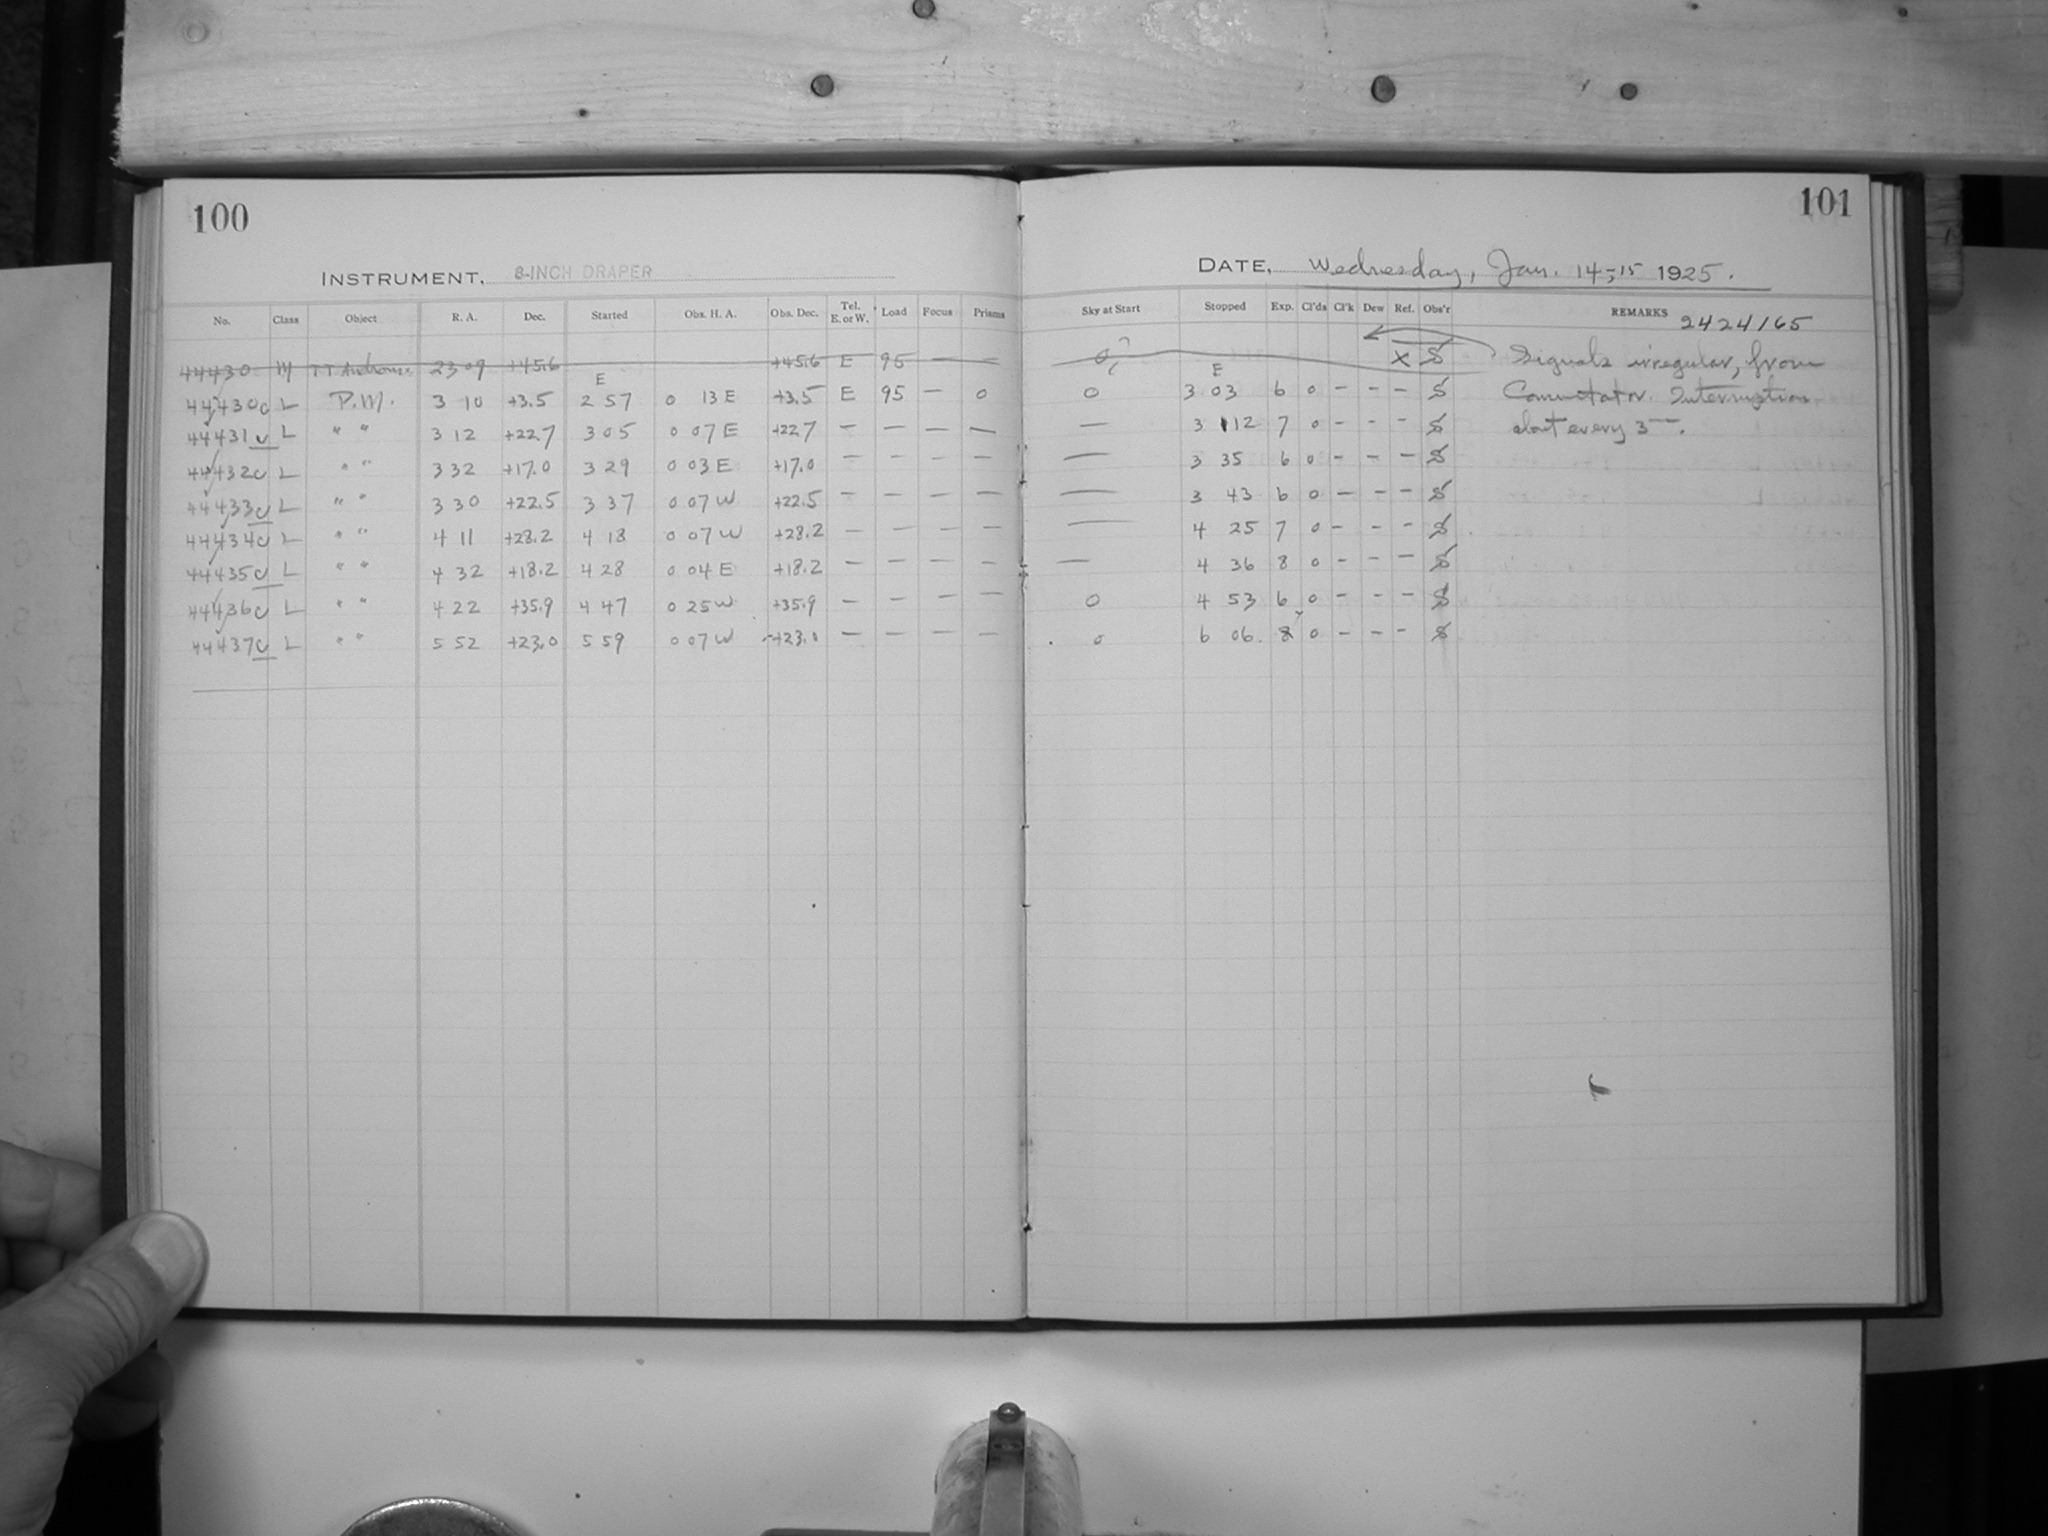 100
INSTRUMENT, 8-INCH DRAPER
No. Class Object R. A. Dec. Started Obs. H. A. Obs. Dec. Tel. E. or W. Load Focus Prisms
44430 M TT Androm. 23 09 +45.6 +45.6 E 95 — —
E
44430c L P.M. 3 10 +3.5 2 57 0 13 E +3.5 E 95 — 0
44431c L " " 3 12 +22.7 3 05 0 07 E +22.7 — — — —
44432c L " " 3 32 +17.0 3 29 0 03 E +17.0 — — — —
44433c L " " 3 30 +22.5 3 37 0 07 W +22.5 — — — —
44434c L " " 4 11 +28.2 4 18 0 07 W +28.2 — — — —
44435c L " " 4 32 +18.2 4 28 0 04 E +18.2 — — — —
44436c L " " 4 22 +35.9 4 47 0 25 W +35.9 — — — —
44437c L " " 5 52 +23.0 5 59 0 07 W +23.0 — — — —
101
DATE, Wednesday, Jan. 14-15 1925.
Sky at Start Stopped Exp. Cl'ds Cl'k Dew Ref. Obs'r REMARKS
2424165
X S Signals irregular, from
E
0 3 03 6 0 - - - S Commutator. Interruption
— 3 12 7 0 - - - S about every 3
— 3 35 6 0 - - - S
— 3 43 6 0 - - - S
— 4 25 7 0 - - - S
— 4 36 8 0 - - - S
0 4 53 6 0 - - - S
0 6 06 0 - - - S